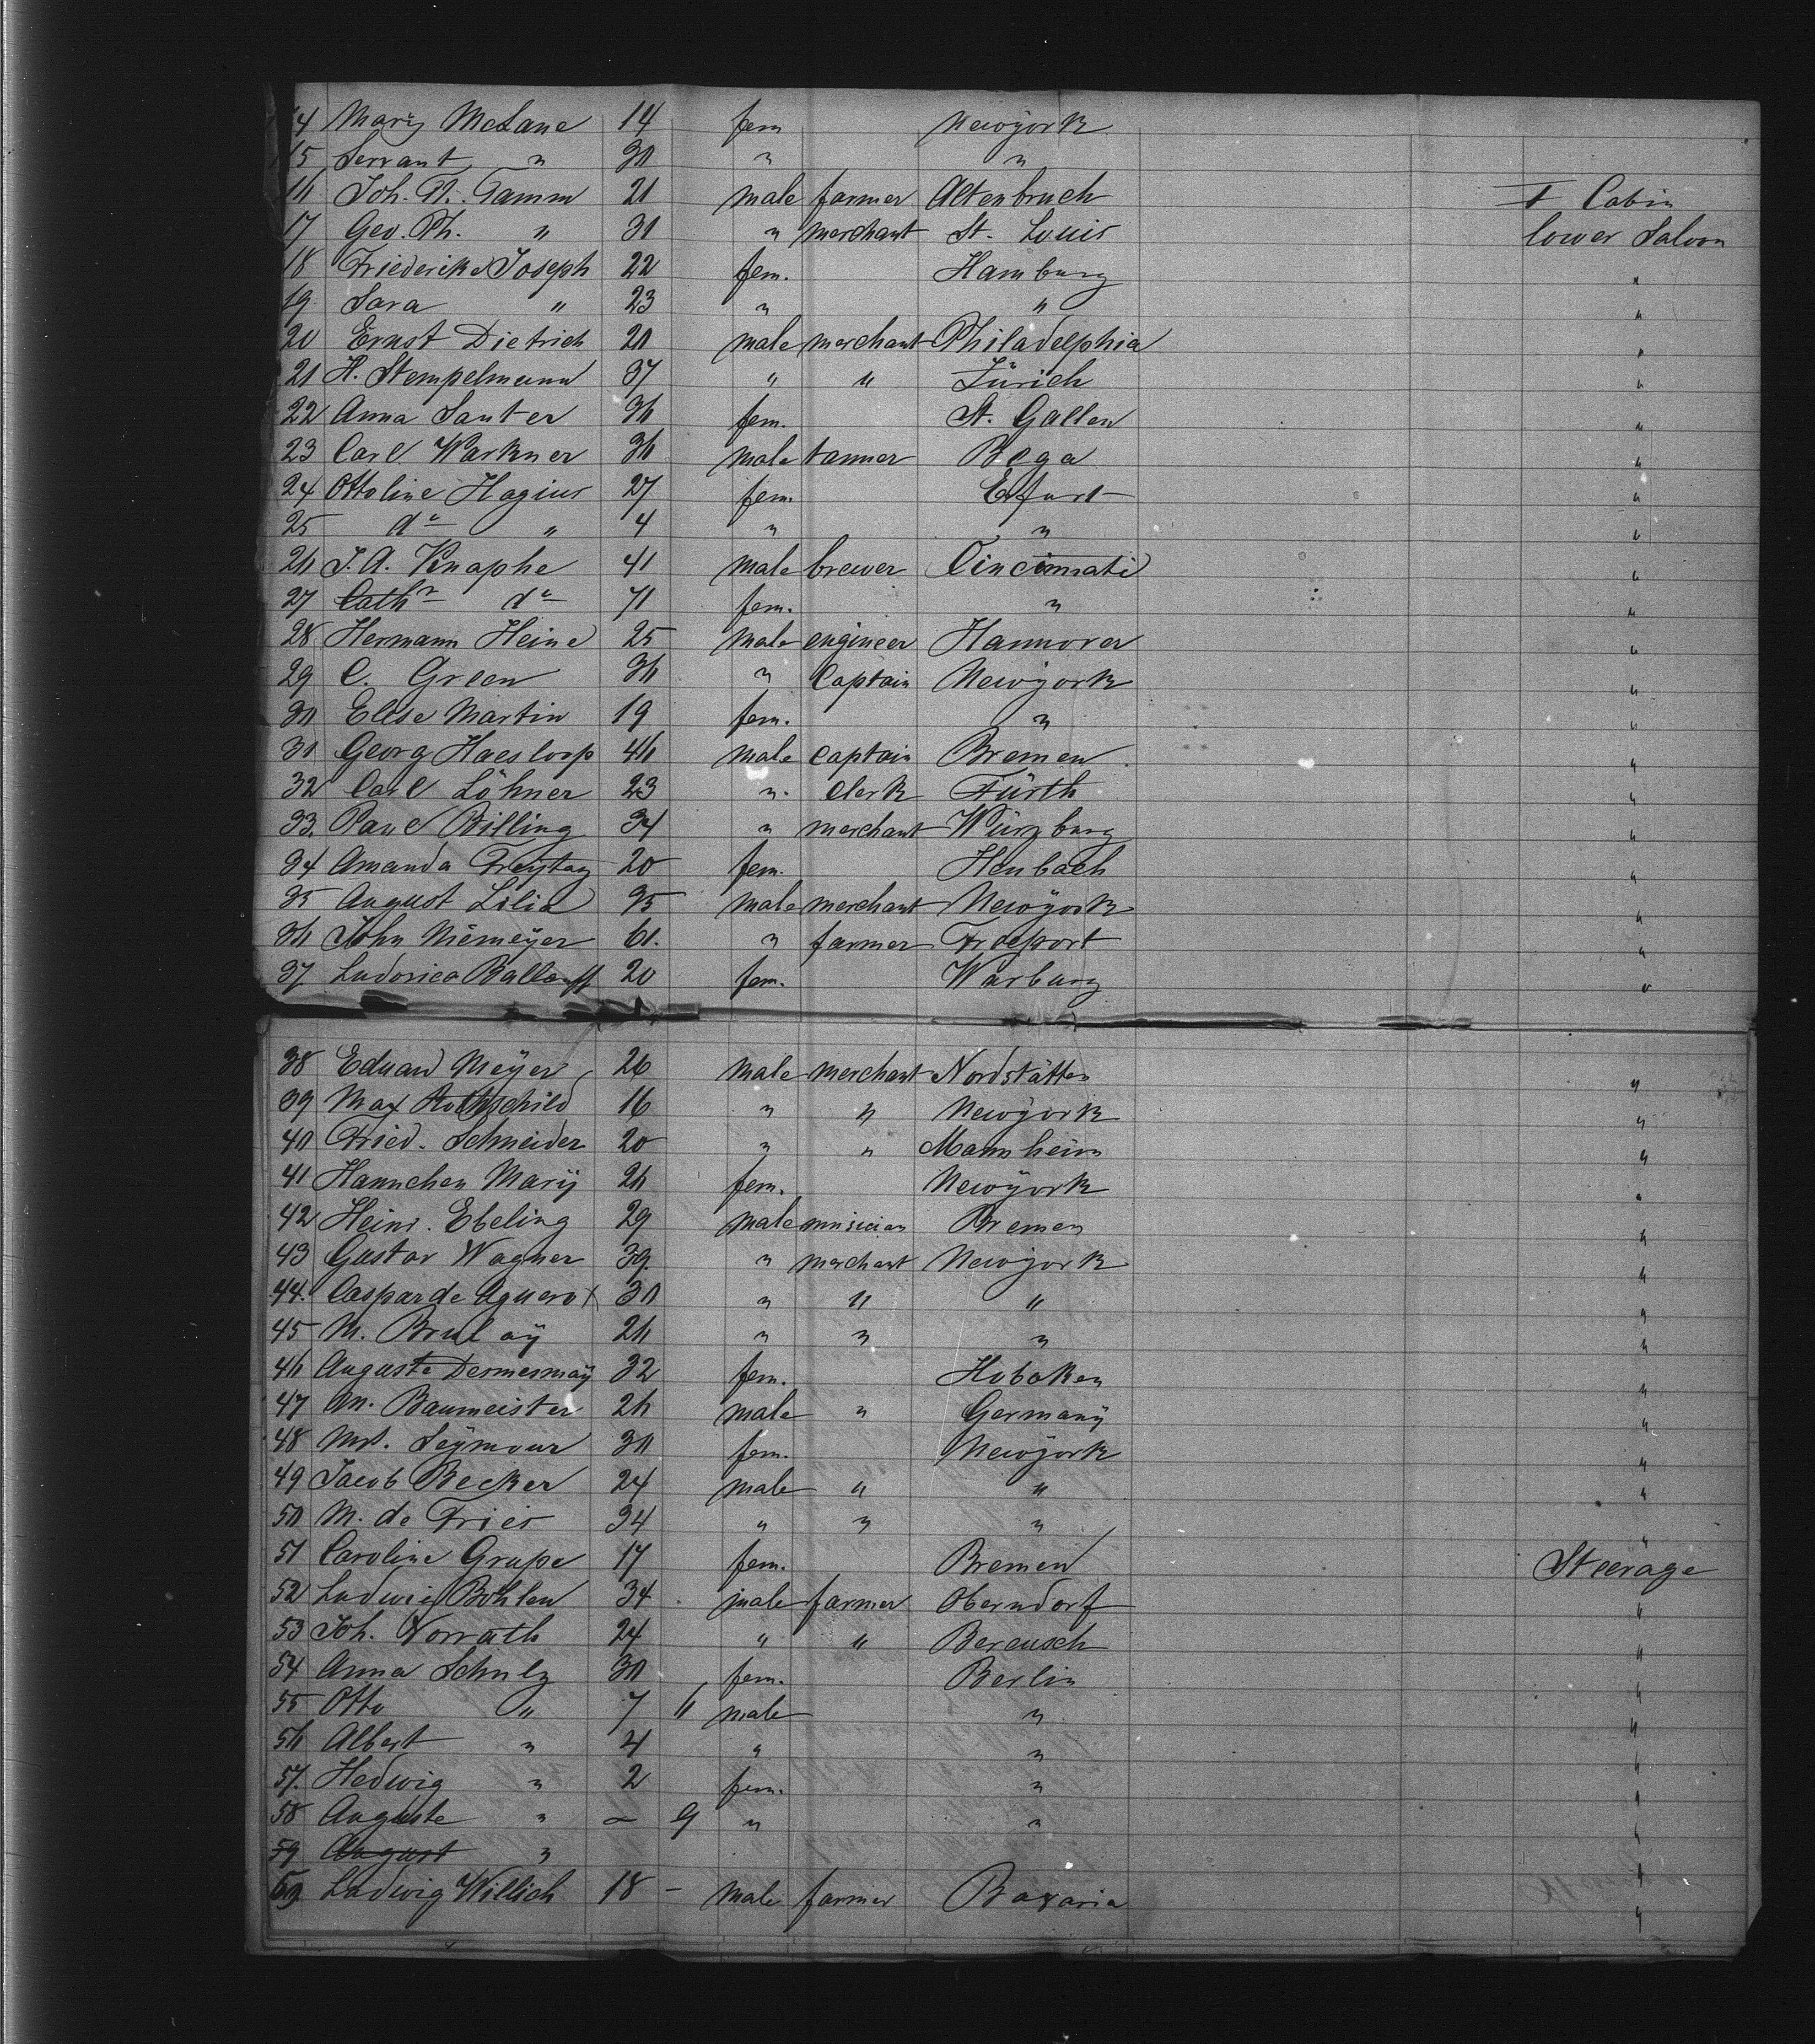 14 Marÿ McLane 14 fem Newÿork
15 Servant " 30 " "
16 Joh. H. Tamm 21 male farmer Altenbruch I Cabin
17 Geo. Ph. " 31 " merchant St. Louis lower Saloon
18 Friederike Joseph 22 fem. Hamburg "
19 Sara " 23 " " "
20 Ernst Dietrich 20 male merchant Philadelphia "
21 H. Stempelmann 37 " " Zürich "
22 Anna Santer 36 fem. St. Gallen "
23 Carl Warkner 36 male tanner Bega "
24 Ottoline Hagius 27 fem. Erfurt "
25 do " 4 " " "
26 J. A. Knaphe 41 male brewer Cincinnati "
27 Cath. do 71 fem. " "
28 Hermann Heine 25 male engineer Hannover "
29 C. Green 36 " Captain Newÿork "
30 Elise Martin 19 fem. " "
31 Georg Haesloop 46 male captain Bremen "
32 Carl Löhner 23 " clerk Fürth "
33. Paul Billing 34 " merchant Würzburg "
34 Amanda Freÿtag 20 fem. Heubach "
35 August Lilia 35 male merchant Newÿork "
36 John Niemeÿer 61. " farmer Freeport "
37 Ludovica Ballauff 20 fem. Warburg "
38 Eduard Meÿer 26 male merchant Nordstätten "
39 Max Rothschild 16 " " Newÿork "
40 Fried. Schneider 20 " " Mannheim "
41 Hannchen Marÿ 26 fem. Newÿork "
42 Heinr. Ebeling 29 male musician Bremen "
43 Gustav Wagner 39. " merchant Newÿork "
44. Caspar de Aguero X 30 " " " "
45 M. Brulaÿ 26 " " " "
46 Auguste Desmesmaÿ 32 fem. Hoboken "
47 M. Baumeister 26 male " Germanÿ "
48 Mrs. Seÿmour 30 fem. Newÿork "
49 Jacob Becker 24 male " " "
50 M. de Fries 34 " " " "
51 Caroline Grupe 17 fem. Bremen Steerage
52 Ludwig Bohlen 34 male farmer Oberndorf "
53 Joh. Vorrath 24 " " Berensch "
54 Anna Schulz 30 fem. Berlin "
55 Otto " 7 " male " "
56 Albert " 4 " " "
57. Hedwig " 2 fem. " "
58 Auguste " - 9 " " "
59 August " "
Ludwig Willich 18 - male farmer Bavaria "